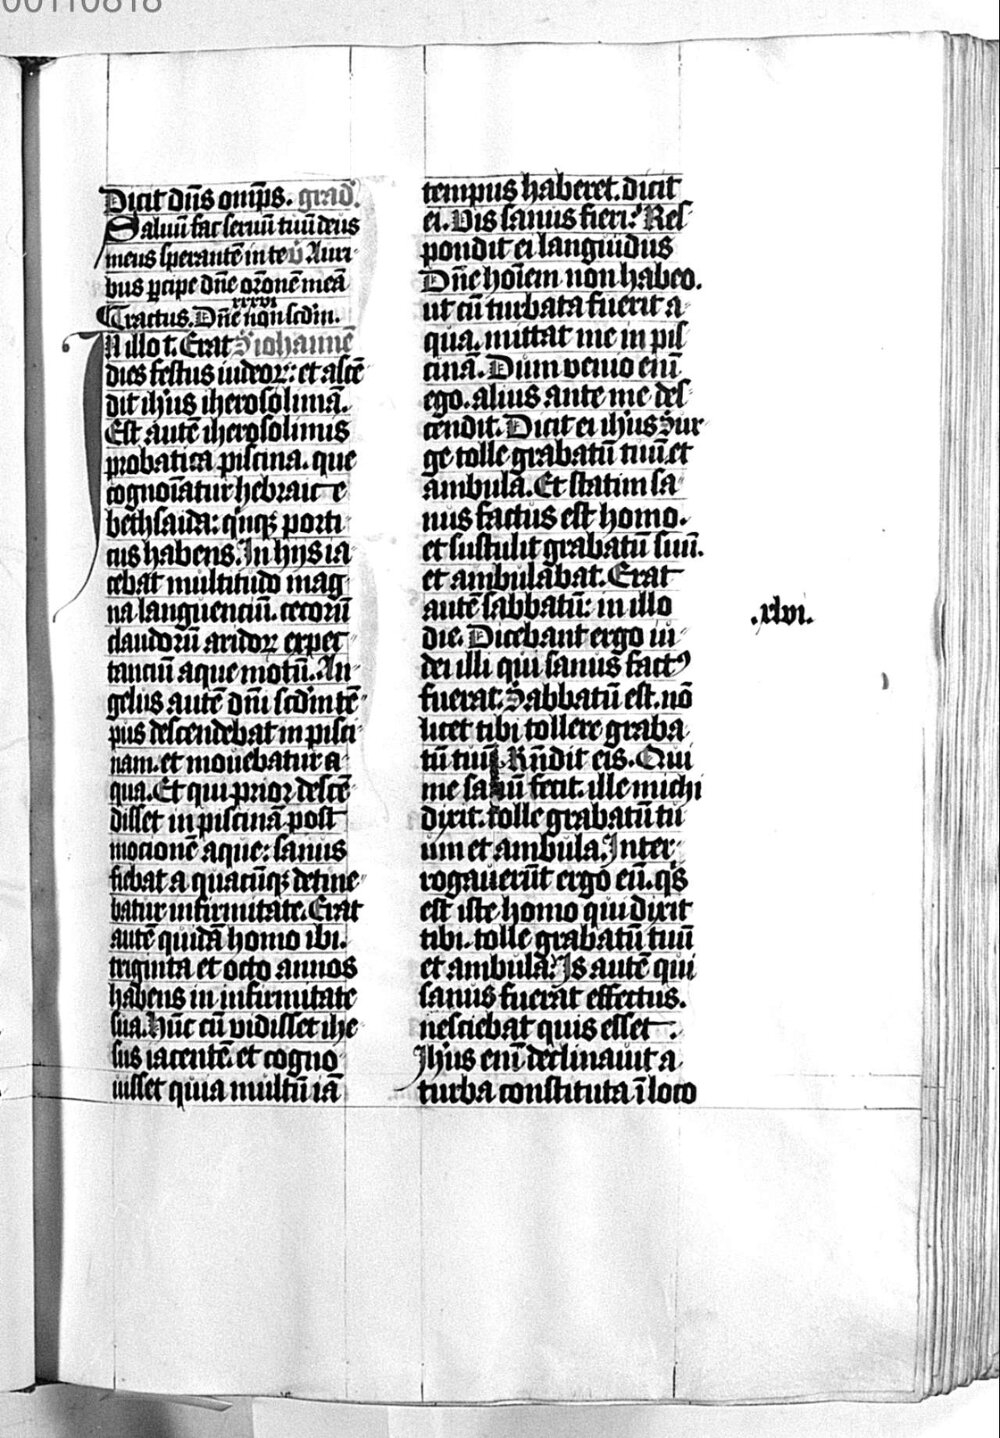 00110818
Dicit dn̄s om̄ps. grad̾.
Saluū fac seruū tuū deus
meus sperantē in te v̾ Auri
bus ꝑcipe dn̄e or̄onē meā
xxxvi
Tractus. Dn̄e non scd̄m.
IN illo t. Erat S̾ iohannē
dies festus iudeoꝝ: et ascē
dit ih̄us iherosolimā.
Est autē iherosolimis
probatica piscina. que
cognoīatur hebraice
bethsaida: qͥnqꝫ porti
cus habens. In hijs ia
cebat multitudo mag
na languenciū. cecorū
claudorū aridoꝝ expec
tanciū aque motū. An
gelus autē dn̄i scd̄m tē
pus descendebat in pisci
nam. et mouebatur a
qua. Et qui prior descē
disset in piscinā post
mocionē aque: sanus
fiebat a quacūqꝫ detine
batur infirmitate. Erat
autē quidā homo ibi.
triginta et octo annos
habens in infirmitate
sua. Hūc cū vidisset ihe
sus iacentē. et cogno
uisset quia multū iā
tempus haberet. dicit
ei. Vis sanus fieri? Res
pondit ei languidus
Dn̄e hoīem non habeo.
ut cū turbata fuerit a
qua. mittat me in pis
cinā. Dum venio enī
ego. alius ante me des
cendit. Dicit ei ih̄us Sur
ge tolle grabatū tuū. et
ambula. Et statim sa
nus factus est homo.
et sustulit grabatū suū.
et ambulabat. Erat
autē sabbatū: in illo
die. Dicebant ergo iu
dei illi qui sanus factꝰ
fuerat. Sabbatū est. nō
licet tibi tollere graba
tū tuū. Rn̄dit eis. Qui
me sanū fecit. ille michi
dixit. tolle grabatū tu
um et ambula. Inter
rogauerūt ergo eū. qͥs
est iste homo qui dixit
tibi. tolle grabatū tuū
et ambula? Is autē qui
sanus fuerat effectus.
nesciebat quis esset.
Ih̄us enī declinauit a
turba constituta ī loco
.xlvi.